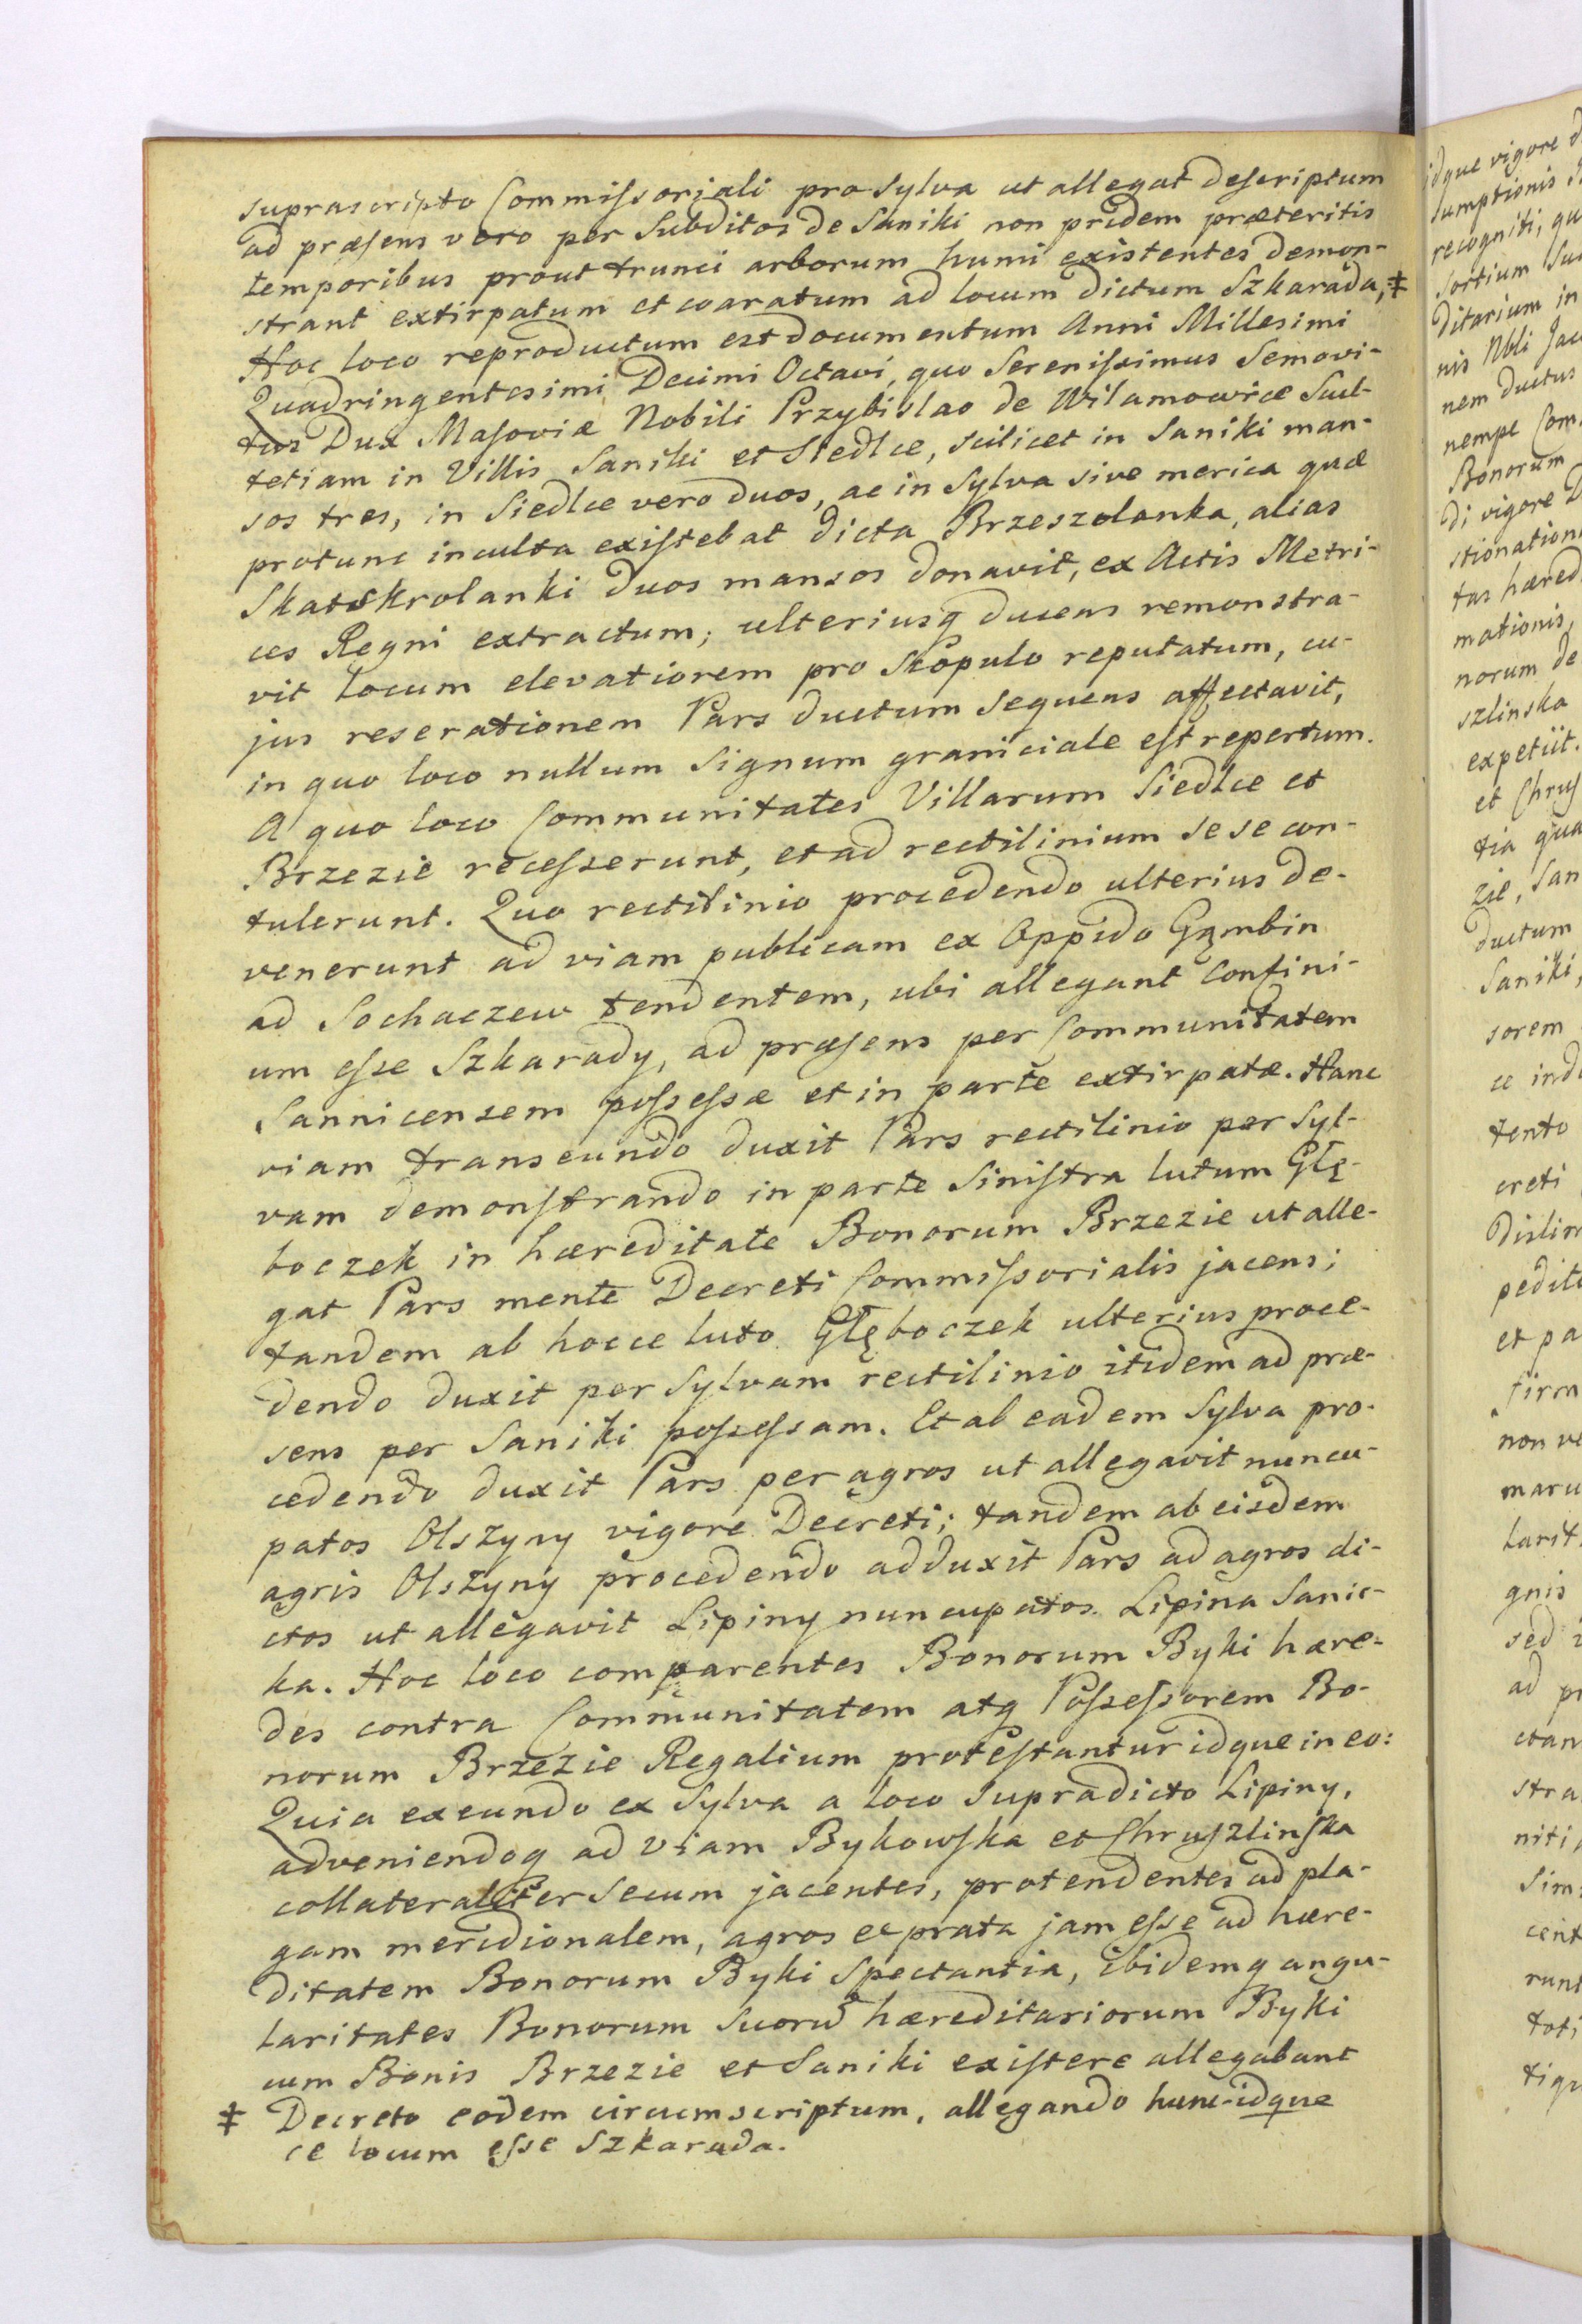 suprascripto Commissoriali pro Sylva ut allegat descriptum
ad præsens vero per Subditos de Saniki non pridem præteritis
temporibus prout trunci arborum humi existentes demon-
strant extirpatum et coaratum ad locum dictum Szkarada, ‡
Hoc loco reproductum est documentum Anni Millesimi
Quadringentesimi Decimi Octavi, quo Serenissimus Semovi-
tus Dux Masoviæ Nobili Przybislao de Wilamowice Scul-
tetiam in Villis Saniki et Siedlce, scilicet in Saniki man-
sos tres, in Siedlce vero duos, ac in Sylva sive merica quæ
protunc inculta existebat dicta Brzeszolanka, alias
Skatskrolanki duos mansos donavit, ex Actis Metri-
ces Regni extractum; ulteriusq ducens remonstra-
vit locum elevatiorem pro Skopulo reputatum, cu-
jus reserationem Pars ductum sequens affectavit,
in quo loco nullum Signum graniciale est repertum.
A quo loco Communitates Villarum Siedlce et
Brzezie recesserunt, et ad rectilinium sese con-
tulerunt. Quo rectilinio procedendo ulterius de-
venerunt ad viam publicam ex Oppido Gąmbin
ad Sochaczew tendentem, ubi allegant Confini-
um esse Szkarady, ad præsens per Communitatem
Sannicensem possessæ et in parte extirpatæ. Hanc
viam transeundo duxit Pars rectilinio per Syl-
vam demonstrando in parte Sinistra lutum Głę-
boczek in hæreditate Bonorum Brzezie ut alle-
gat Pars mente Decreti Commissorialis jacens;
tandem ab hocce luto Głęboczek ulterius proce-
dendo duxit per Sylvam rectilinio itidem ad præ-
sens per Saniki possessam. Et ab eadem Sylva pro-
cedendo duxit Pars per agros ut allegavit nuncu-
patos Olszyny vigore Decreti; tandem ab eisdem
agris Olszyny procedendo adduxit Pars ad agros di-
ctos ut allegavit Lipiny nuncupatos Lipina Sanic-
ka. Hoc loco comparentes Bonorum Byki hære-
des contra Communitatem atq Possessorem Bo-
norum Brzezie Regalium protestantur idque in eo:
Quia exeundo ex Sylva a loco supradicto Lipiny,
adveniendoq ad Viam Bykowska et Chruszlinska
collateraliter secum jacentes, protendentes ad pla-
gam meridionalem, agros et prata jam esse ad hære-
ditatem Bonorum Byki Spectantia, ibidemq angu-
laritates Bonorum Suorū hæreditariorum Byki
cum Bonis Brzezie et Saniki existere allegabant
‡ Decreto eodem circumscriptum, allegando hunc- idque
ce locum esse Szkarada.
idque vigore
sumptionis
recogniti,
sortium
ditarium in
nis Nbli
nem ductus
nempe
Bonorum
di vigore
stionation
tas hæred
mationis,
norum de
szlinska
expetiit.
et Chrus
tia qua
zie, San
ductum
Saniki,
sorem
ce ind
tento
creti
pedit
et pa
firm
non ve
maru
larit
gnis
sed
ad pr
ctan
stra
niti
Sim
cent
runt
toti
tiqu